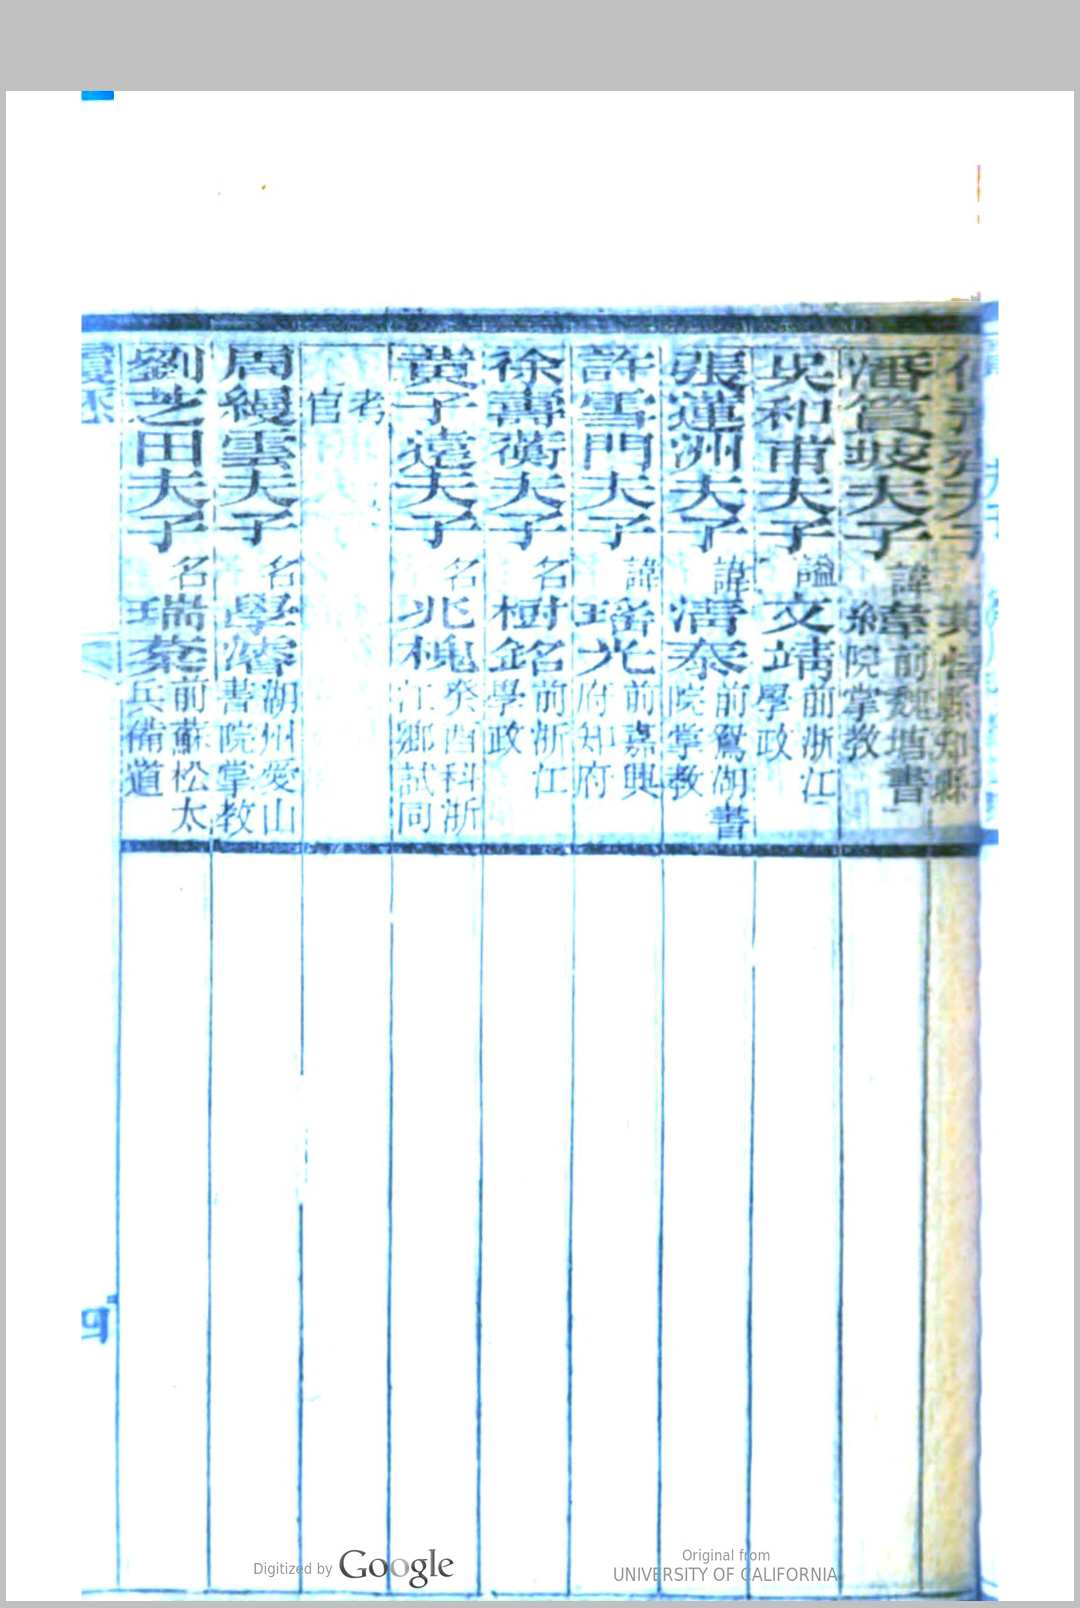 潘簣坡夫子 諱韋前魏塘書院掌教
吳和甫夫子 謚文靖前浙江學政
張蓮洲夫子 諱清泰前鴛湖書院掌教
許雪門夫子 諱瑤光前嘉興府知府
徐壽蘅夫子 名樹銘前浙江學政
黃子遠夫子 名兆槐癸酉科浙江鄉試同
考官
周縵雲夫子 名學濬湖州愛山書院掌教
劉芝田夫子 名瑞棻前蘇松太兵備道
履歷
四
Digitized by Google
Original from
UNIVERSITY OF CALIFORNIA